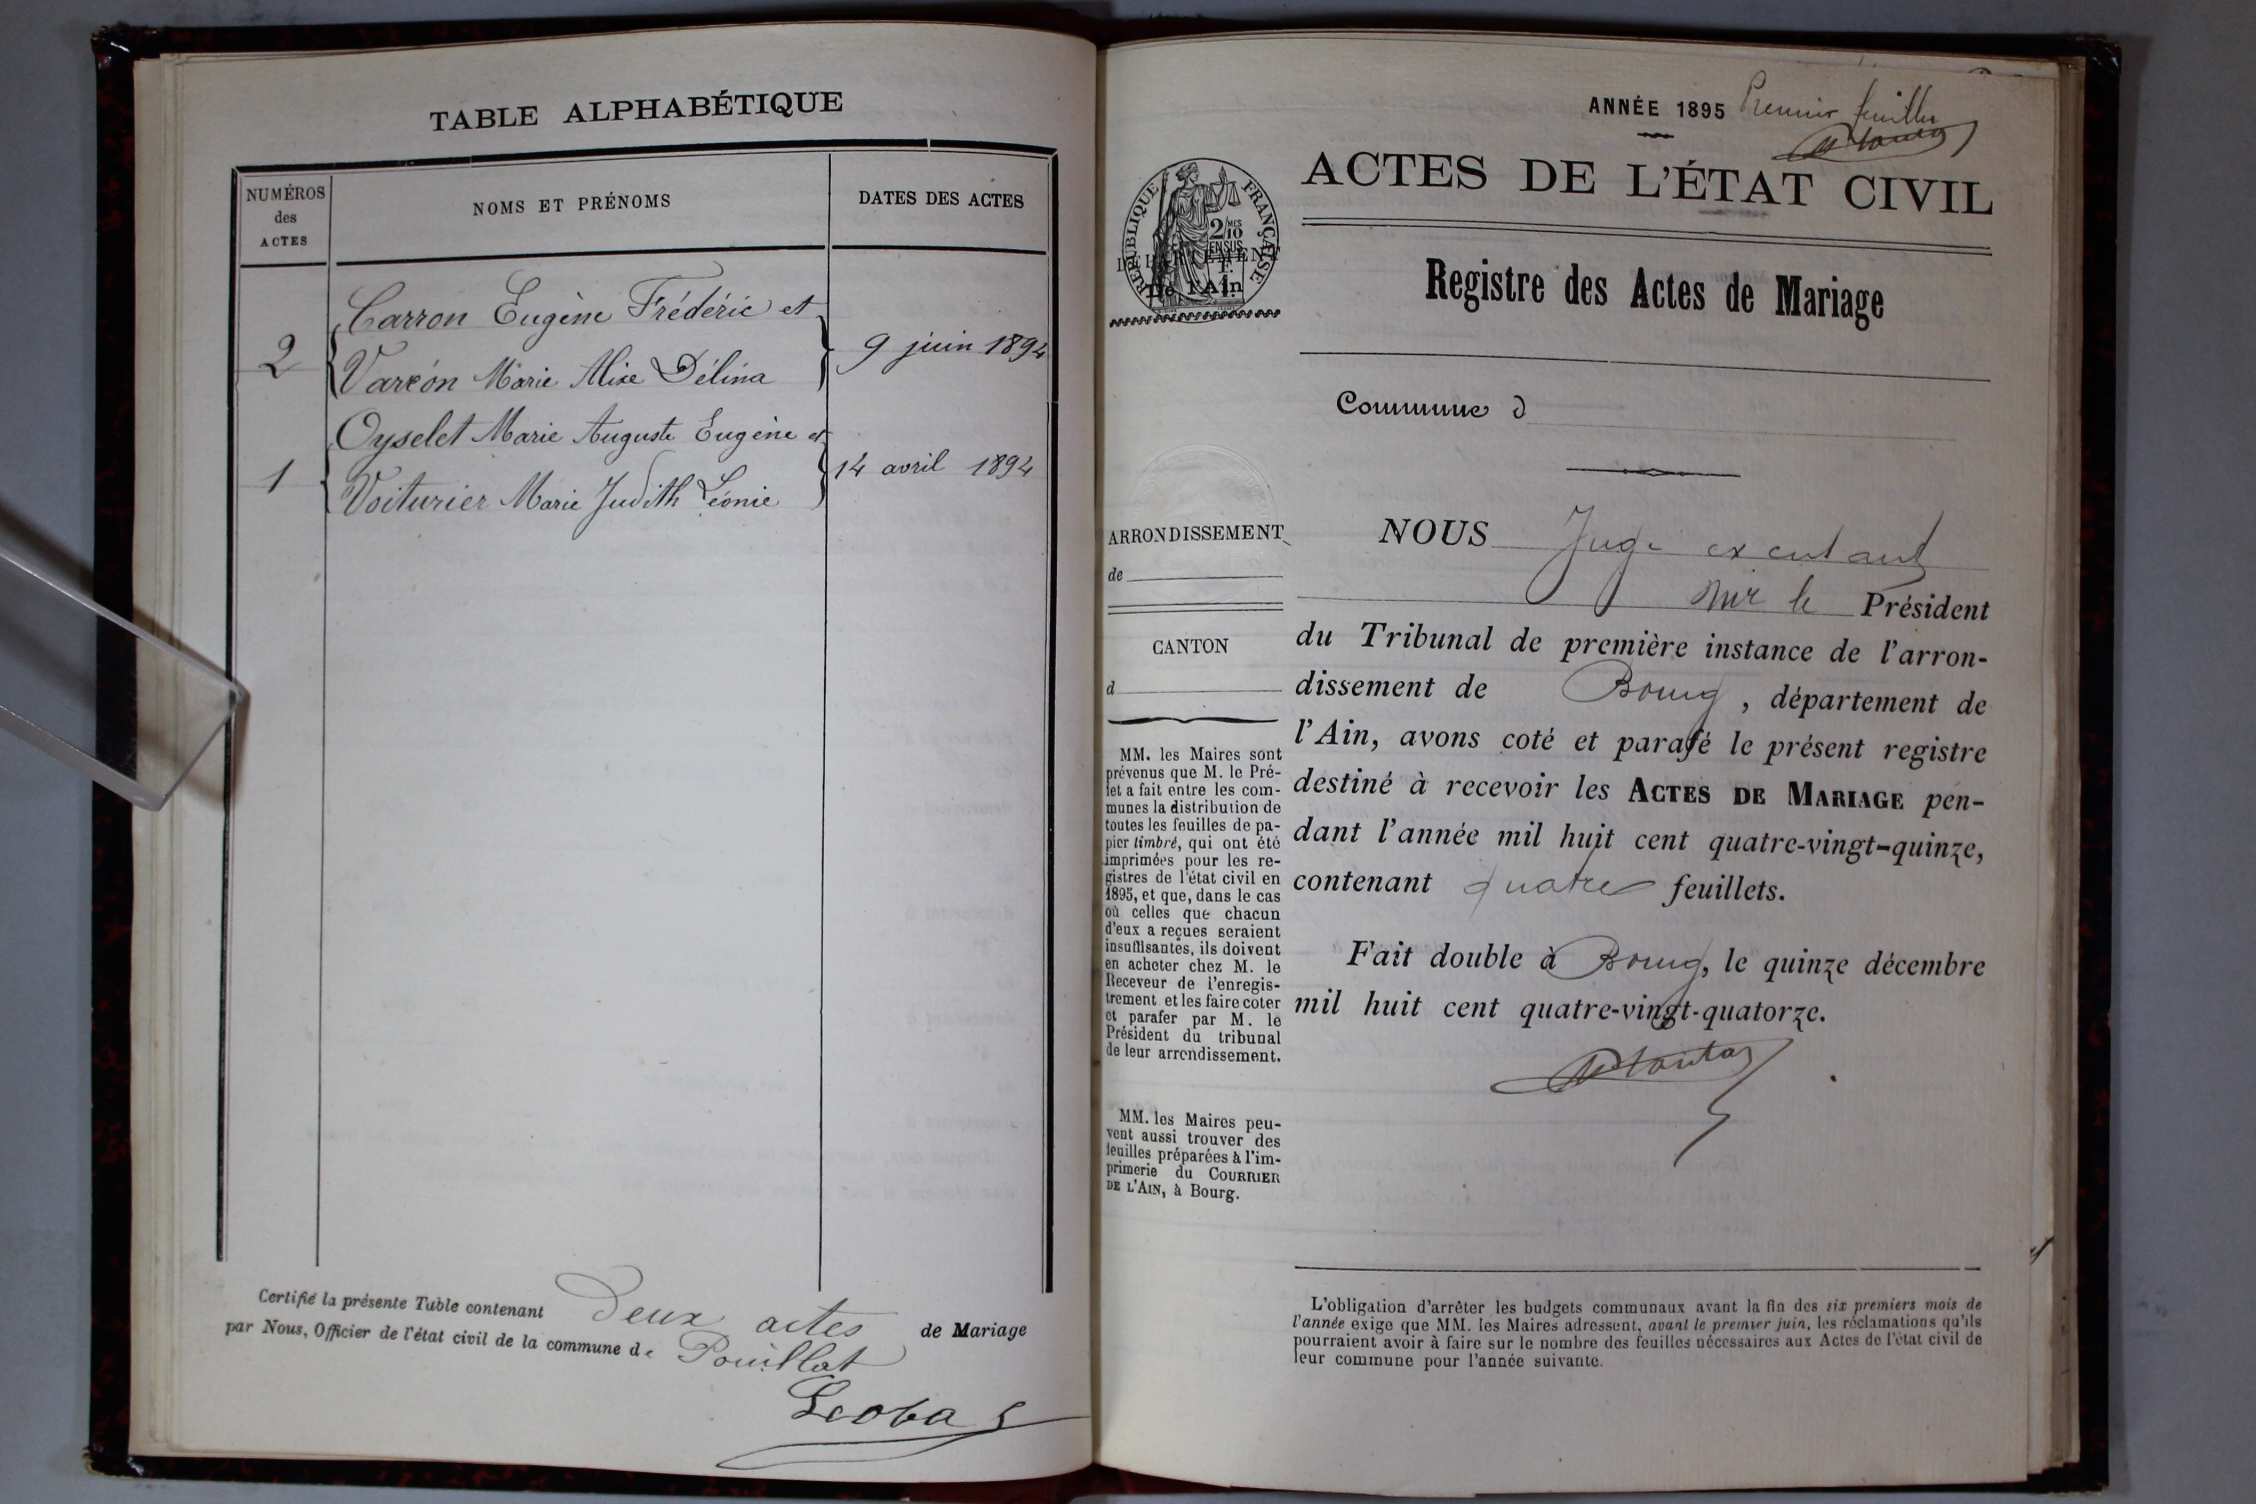 TABLE ALPHABÉTIQUE
NUMÉROS
des
ACTES
NOMS ET PRÉNOMS
DATES DES ACTES
Carron Eugène Frédéric et
2
9 juin 1894
Varéon Marie Alixe Délina
Oyselet Marie Auguste Eugène et
1
14 avril 1894
Voiturier Marie Judith Léonie
Certifié la présente Table contenant Deux actes de Mariage
par Nous, Officier de l'état civil de la commune de Pouillat
ANNÉE 1895 Premier feuillet
ACTES DE L'ÉTAT CIVIL
RÉPUBLIQUE FRANÇAISE
2/10 MES
EN SUS
1 F.
DÉPARTEMENT
De l'Ain
Registre des Actes de Mariage
Commune d
ARRONDISSEMENT
de
CANTON
d
MM. les Maires sont
prévenus que M. le Pré-
fet a fait entre les com-
munes la distribution de
toutes les feuilles de pa-
pier timbré, qui ont été
imprimées pour les re-
gistres de l'état civil en
1895, et que, dans le cas
où celles que chacun
d'eux a reçues seraient
insuffisantes, ils doivent
en acheter chez M. le
Receveur de l'enregis-
trement et les faire coter
et parafer par M. le
Président du tribunal
de leur arrondissement.
MM. les Maires peu-
vent aussi trouver des
feuilles préparées à l'im-
primerie du COURRIER
DE L'AIN, à Bourg.
NOUS Juge
le Président
du Tribunal de première instance de l'arron-
dissement de Bourg, département de
l'Ain, avons coté et parafé le présent registre
destiné à recevoir les ACTES DE MARIAGE pen-
dant l'année mil huit cent quatre-vingt-quinze,
contenant quatre feuillets.
Fait double à Bourg, le quinze décembre
mil huit cent quatre-vingt-quatorze.
L'obligation d'arrêter les budgets communaux avant la fin des six premiers mois de
l'année exige que MM. les Maires adressent, avant le premier juin, les réclamations qu'ils
pourraient avoir à faire sur le nombre des feuilles nécessaires aux Actes de l'état civil de
leur commune pour l'année suivante.